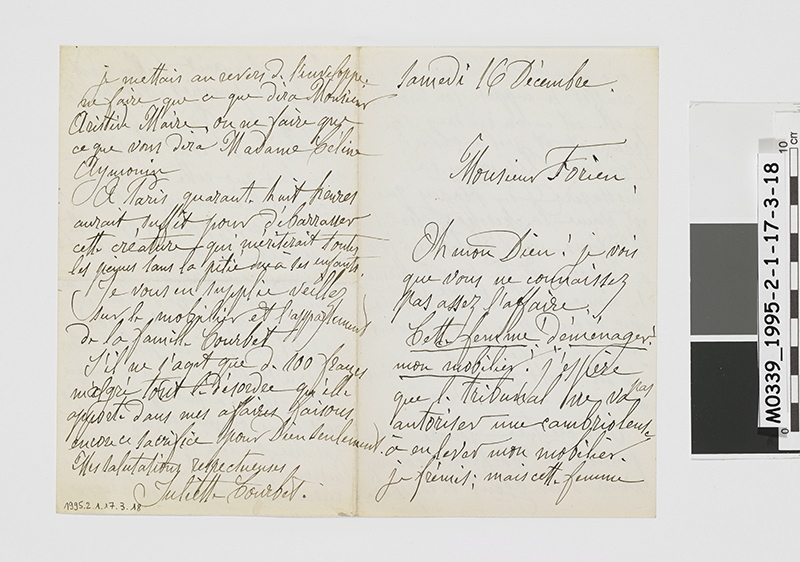 Samedi 16 Décembre.
Monsieur Forien,
Oh mon Dieu! je vois
que vous ne connaissez
pas assez l'affaire.
Cette femme déménager!
mon mobilier! j'espère
que le tribunal ne va pas
autoriser une cambrioleuse
à enlever mon mobilier.
je frémis; mais cette femme
je mettais au revers de l'enveloppe:
ne faire que ce que dira Monsieur
Aristide Maire, ou ne faire que
ce que vous dira Madame Céline
Aymonin
A Paris quarante huit heures
aurait suffit pour débarrasser
cette créature qui mériterait toutes
les peines sans la pitié due à ses enfants.
Je vous en supplie veillez
sur le mobilier et l'appartement
de la famille Courbet
S'il ne s'agit que de 100 francs
malgré tout le désordre qu'elle
apporte dans mes affaires faisons
encore ce sacrifice pour Dieu seulement.
Mes salutations respectueuses
Juliette Courbet.
1995.2.1.17.3.18
M0339_1995-2-1-17-3-18
10
cm
0